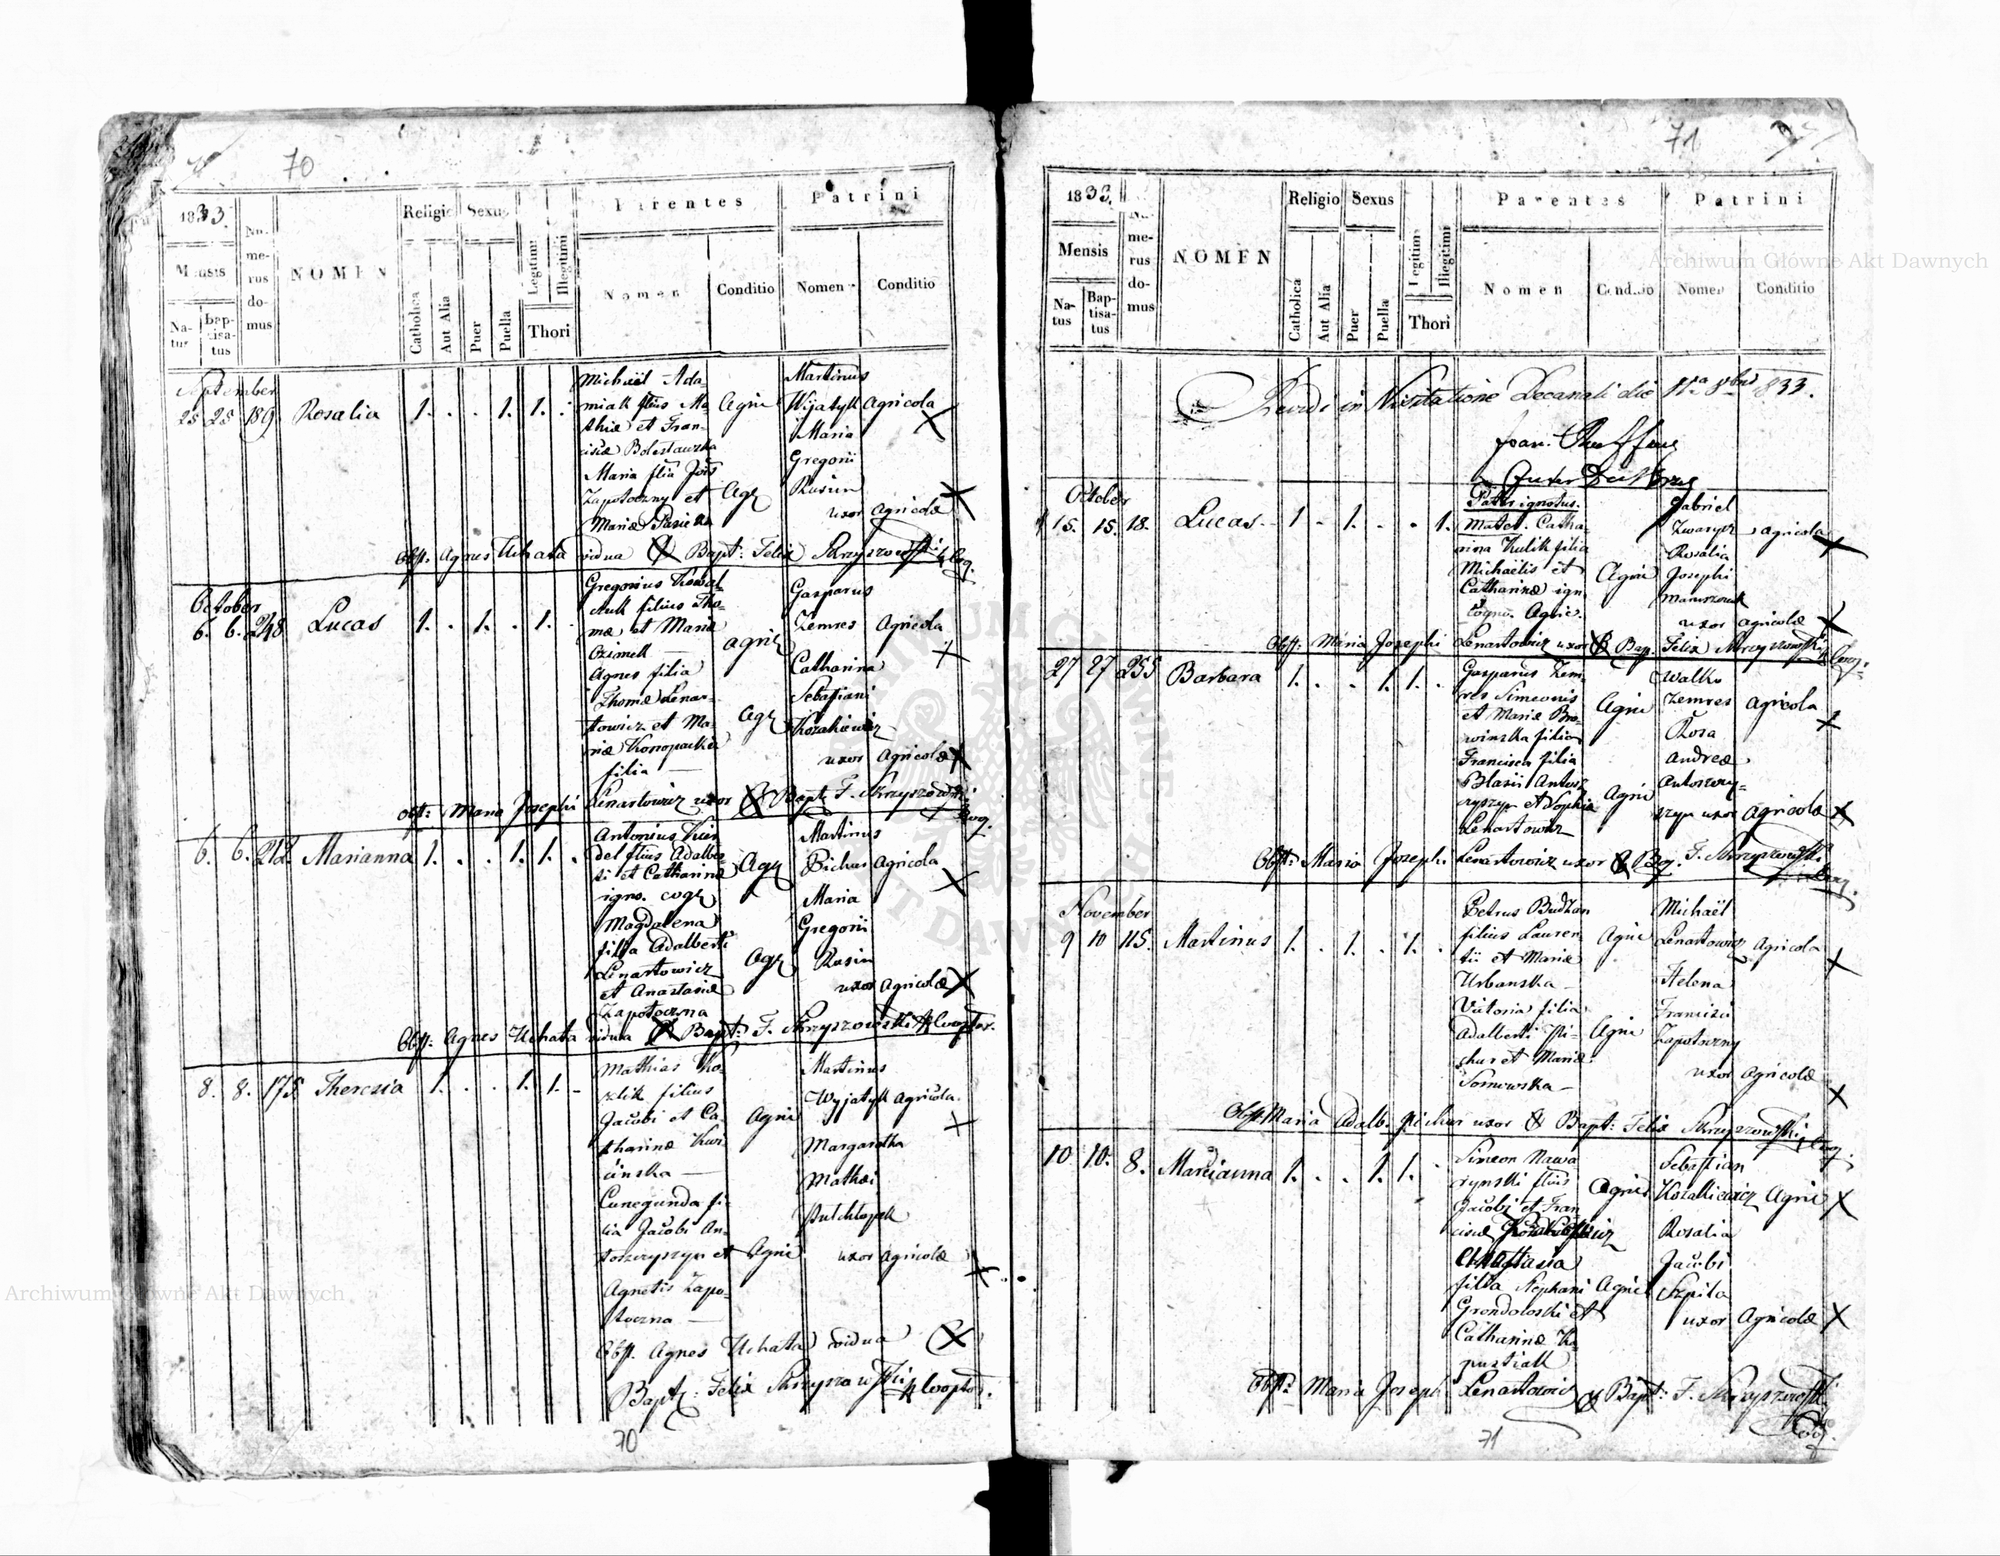 70
1833.
Mensis
Na-
tus
Bap-
tisa-
tus
Nu-
me-
rus
do-
mus
NOMEN
Religio
Catholica
Aut Alia
Sexus
Puer
Puella
Legitimi
Illegitimi
Thori
Parentes
Nomen
Conditio
Patrini
Nomen
Conditio
September
25 25 189. Rosalia 1. . . 1. 1. .
Michaël Ada-
miak filius Ma-
thiæ et Fran-
ciscæ Bolestawska
Maria filia Jois
Zapotoczny et
Mariæ Pasieka
Agric
Agr
Martinus
Wyjatyk Agricola
Maria
Gregorii
Rusin
uxor Agricolæ
Obst. Agnes Uchata vidua Bapt: Felix Skrzyszowski Coop.
October
6. 6. 248 Lucas 1. . 1. . 1. .
Gregorius Kowal-
czuk filius Tho-
mæ et Mariæ
Ozimek
Agnes filia
Thomæ Lenar-
towicz et Ma-
riæ Konopacka
filia
agric
Agr
Gasparus
Zemres Agricola
Catharina
Sebastiani
Kozakiewicz
uxor Agricolæ
Obst: Maria Josephi Lenartowicz uxor Bapt F. Skrzyszowski Coop.
6. 6. 212. Marianna 1. . . 1. 1. .
Antonius Kuin-
del filius Adalber-
ti et Catharinæ
igno. cogr
Magdalena
filia Adalberti
Lenartowicz
et Anastasiæ
Zapotoczna
Agr
Agr
Martinus
Bichus Agricola
Maria
Gregorii
Rusin
uxor Agricolæ
Obst: Agnes Uchata vidua Bapt: F. Skrzyszowski Cooptor.
8. 8. 175 Theresia 1. . . 1. 1. .
Mathias Ko-
zlik filius
Jacobi et Ca-
tharinæ Kwi-
cinska
Cunegunda fi-
lia Jacobi An-
toszczyszyn et
Agnetis Zapo-
toczna
Agric
Agric
Martinus
Wyjatyk Agricola.
Margaretha
Mathæi
uxor Agricolæ
Obst. Agnes Uchata vidua
Bapt: Felix Skrzyszowski Cooptor.
70
71
1833.
Mensis
Na-
tus
Bap-
tisa-
tus
Nu-
me-
rus
do-
mus
NOMEN
Religio
Catholica
Aut Alia
Sexus
Puer
Puella
Legitimi
Illegitimi
Thori
Parentes
Nomen
Conditio
Patrini
Nomen
Conditio
in Visitatione Decanali die 11a 8bris 833.
Joan.
October
15. 15. 18. Lucas 1 . 1. . . 1.
Pater ignotus.
Mater. Catha-
rina Kulik filia
Michaëlis et
Catharinæ ign-
cogn. Agric.
Agric
Gabriel
Zwarycz agricola
Rosalia
Josephi
uxor agricolæ
Obst: Maria Josephi Lenartowicz uxor Bap. Felix Skrzyszowski Coop.
27 27 255 Barbara 1. . . 1. 1. .
Gasparus Zem-
res Simeonis
et Mariæ Bro-
winska filius
Francisca filia
Blasii Antosz-
czyszyn et Sophiæ
Lenartowicz
Agric
Agric
Walko
Zemres agricola
Rosa
Andreæ
Antoszczy-
szyn uxor Agricolæ
Obst: Maria Josephi Lenartowicz uxor Bap. F. Skrzyszowski Coop.
November
9 10 115. Martinus 1. . 1. . 1. .
Petrus Budzan
filius Lauren-
tii et Mariæ
Urbanska
Victoria filia
Adalberti Pi-
chur et Mariæ
Sornowska
Agric
Agric
Michaël
Lenartowicz Agricola
Helena
Francisci
Zapotoczny
uxor Agricolæ
Obst Maria Adalb. Pichur uxor Bapt: Felix Skrzyszowski Coop.
10 10. 8. Marcianna 1. . . 1. 1. .
Simeon Nawa-
rynski filius
Jacobi et Fran-
ciscæ
Anastasia
filia Stephani
Grondoloski et
Catharinæ Ka-
pusciak
Agric
Agric
Sebastian
Kozakiewicz Agric
Rosalia
Jacobi
Szpila
uxor Agricolæ
Obst: Maria Josephi Lenartowicz Bapt: F. Skrzyszowski
Coop.
71
Archiwum Główne Akt Dawnych
Archiwum Główne Akt Dawnych